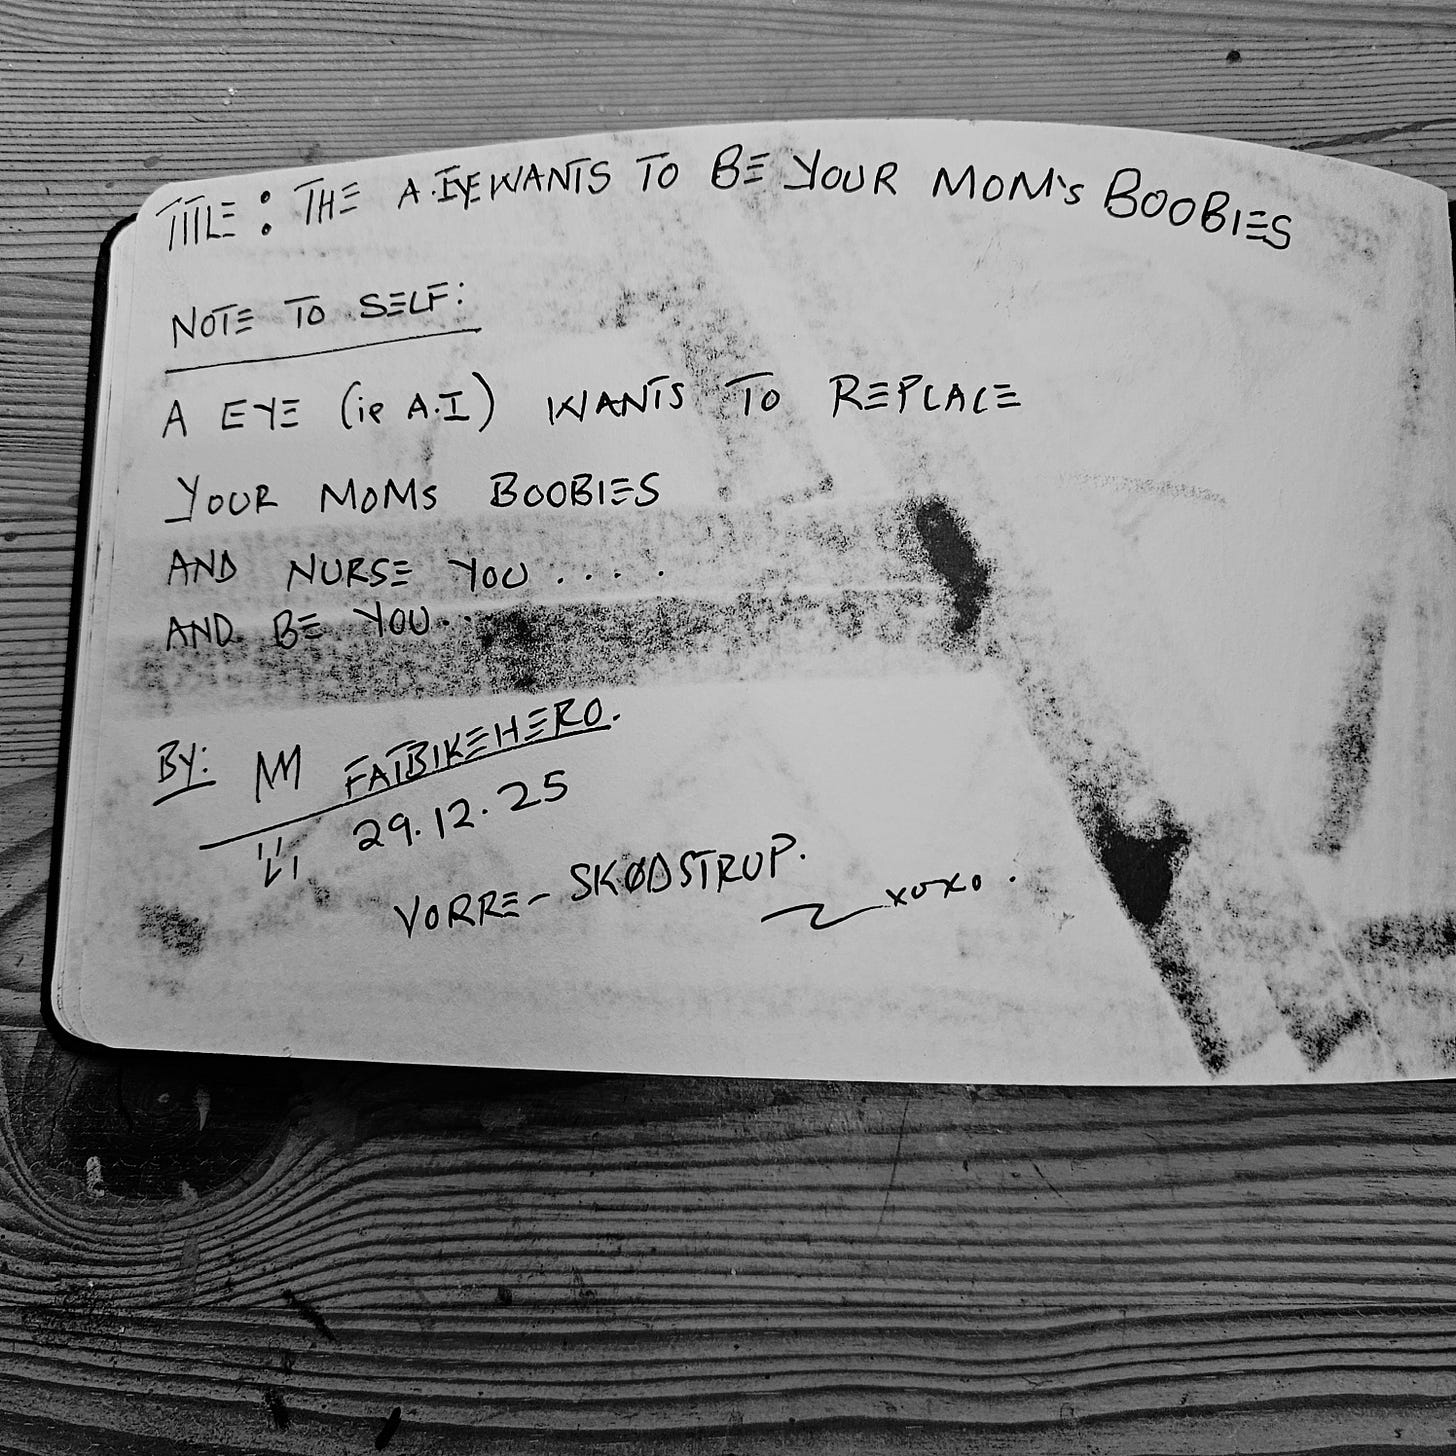 TITLE: THE A.IYE WANTS TO BE YOUR MOM'S BOOBIES
NOTE TO SELF:
A EYE (ie A.I) WANTS TO REPLACE
YOUR MOMS BOOBIES
AND NURSE YOU.....
AND BE YOU...
BY: FATBIKEHERO.
29.12.25
VORRE-SKØDSTRUP.
xoxo.